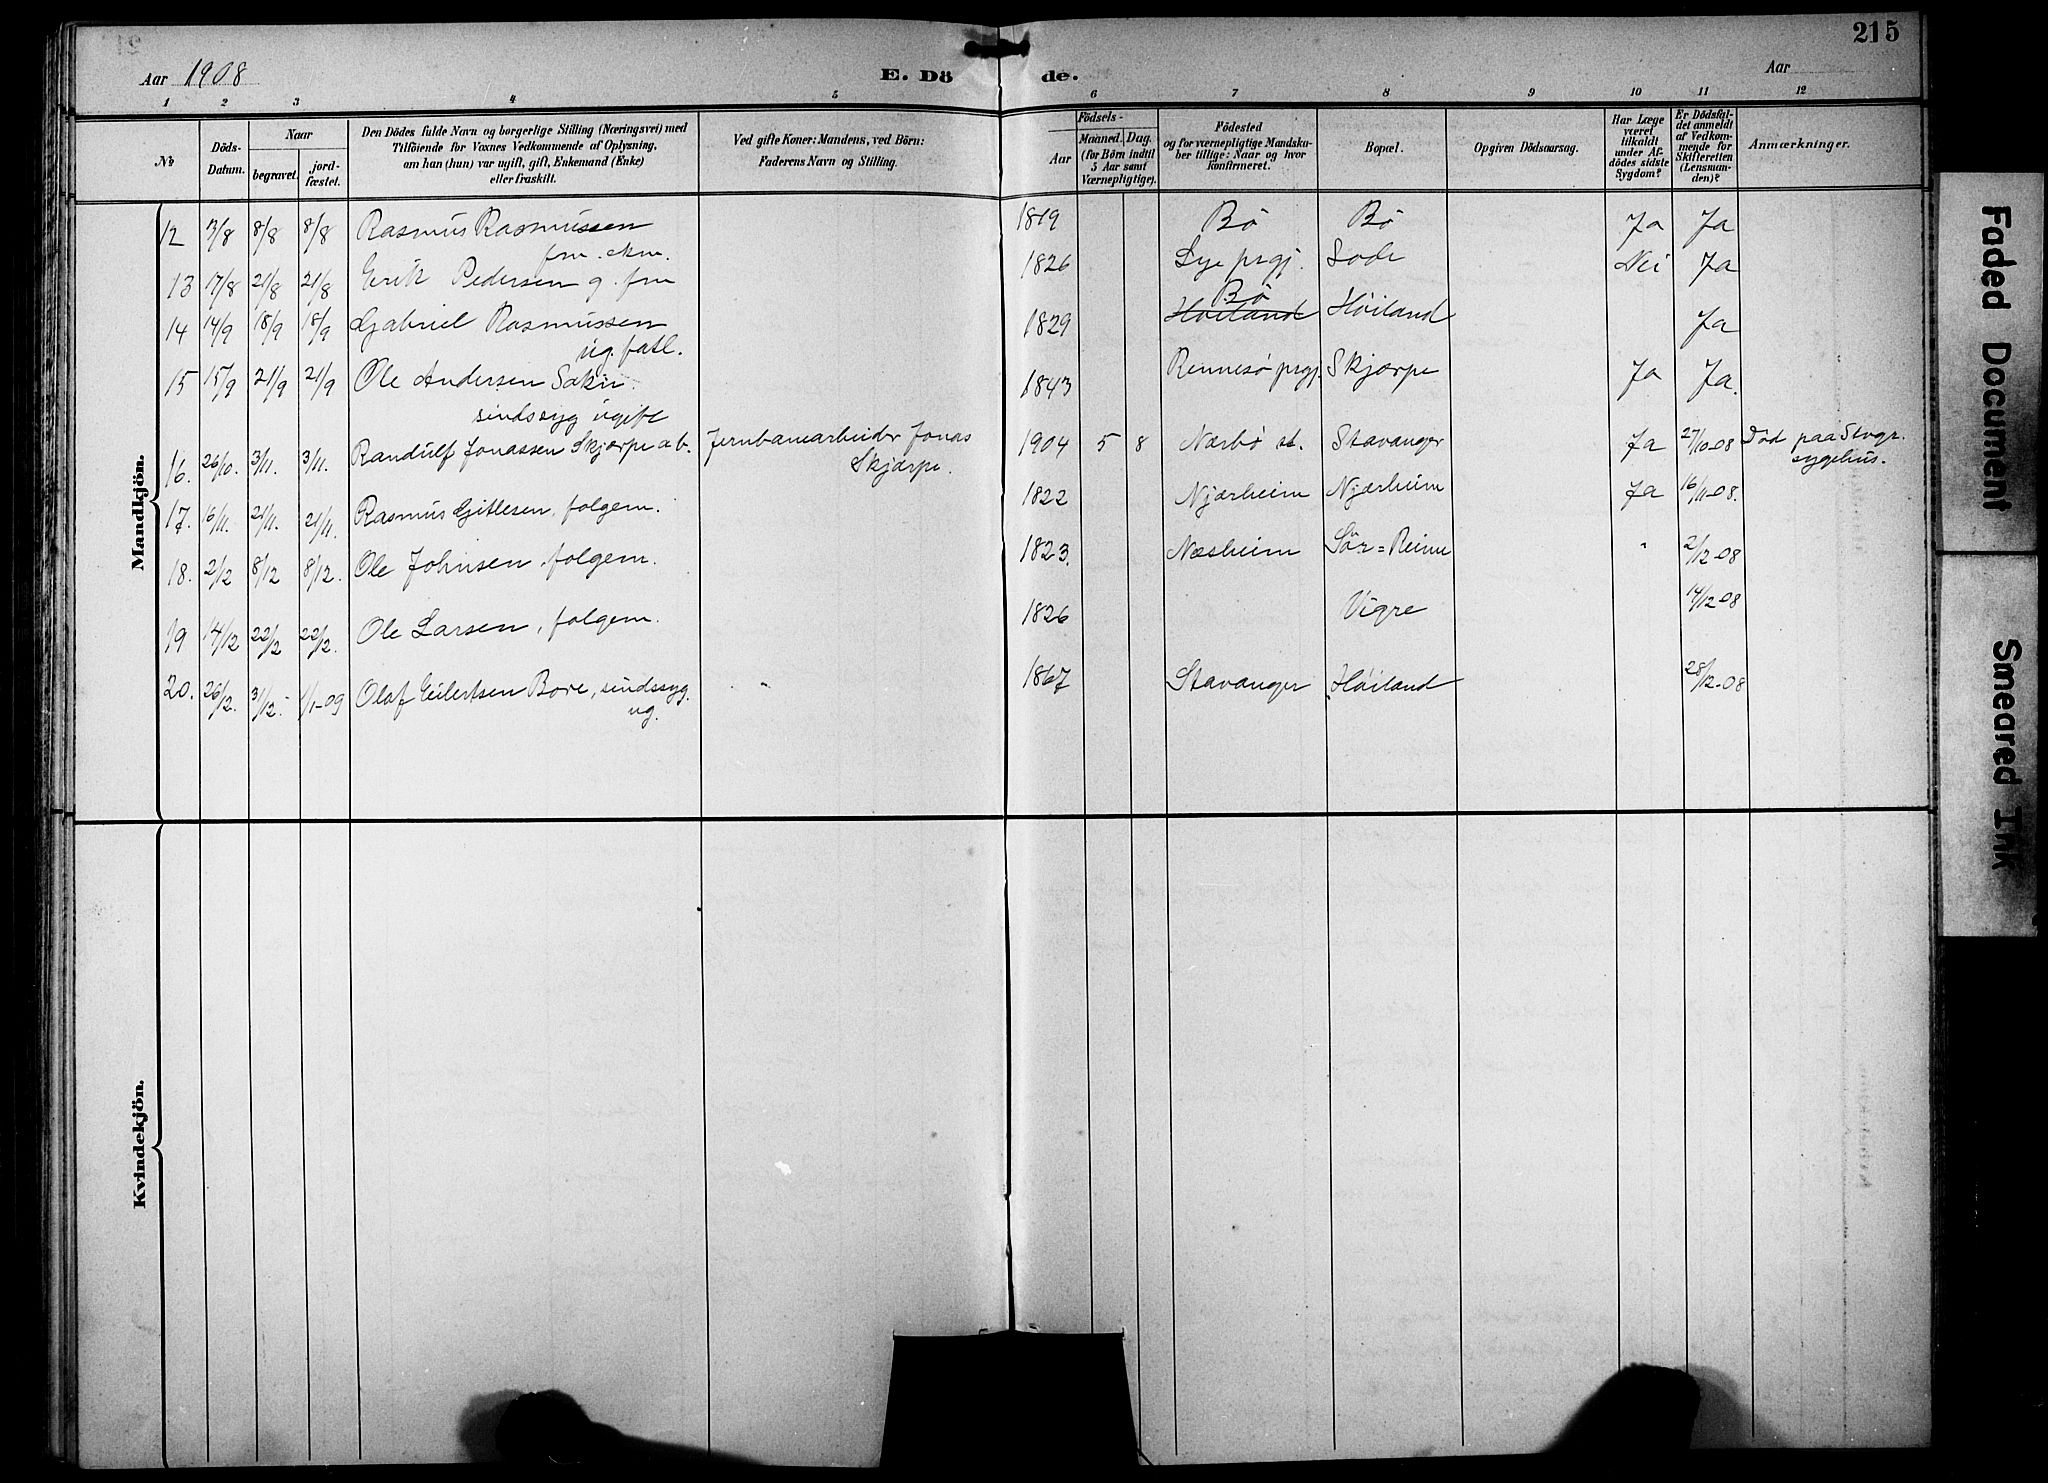 215
Aar 1908 E. Dö de. Aar
1 2 3 4 5 6 7 8 9 10 11 12
No
Döds-Datum.
Naar
begravet.
jord-fæstet.
Den Dödes fulde Navn og borgerlige Stilling (Næringsvei) med
Tilföiende for Voxnes Vedkommende af Oplysning,
om han (hun) var ugift, gift, Enkemand (Enke)
eller fraskilt.
Ved gifte Koner: Mandens, ved Börn:
Faderens Navn og Stilling.
Födsels-
Aar
Maaned. Dag.
(for Börn indtil
5 Aar samt
Værnepligtige).
Födested
og for værnepligtige Mandska-
ber tillige: Naar og hvor
konfirmeret.
Bopæl.
Opgiven Dödsaarsag.
Har Læge
været
tilkaldt
under Af-
dödes sidste
Sygdom?
Er Dödsfal-
det anmeldt
af Vedkom-
mende for
Skifteretten
(Lensman-
den)?
Anmærkninger.
Mandkjön.
12 3/8 8/8 8/8 Rasmus Rasmussen 1819 Bö Bö Ja Ja
frm. ekm.
13 17/8 21/8 21/8 Erik Pedersen g. frm 1826 Lye prgj. Lode Nei Ja
14 14/9 18/9 18/9 Gabriel Rasmussen 1829 Bö Höiland Höiland Ja
ug. fatl.
15 15/9 21/9 21/9 Ole Andersen 1843 Rennesö prgj. Skjærpe Ja Ja.
sindssyg ugift
16. 26/10. 3/11. 3/11. Randulf Jonassen Skjærpe a.b. Jernbanearbeider Jonas 1904 5 8 Nærbö st. Stavanger Ja 27/10-08 Död paa Stvgr.
Skjærpe. sygehus.
17. 16/11. 21/11. 21/11. Rasmus Gitlesen, folgem. 1822 Njærheim Njærheim Ja 16/11-08.
18. 2/12 8/12 8/12. Ole Johnsen, folgem. 1823. Næsheim Sör=Reime " 2/12-08
19 14/12 22/12 22/12. Ole Larsen, folgem. 1826 Vigre 14/12-08
20. 26/12. 31/12.- 1/1-09 Olaf Eilertsen Bore, sindssyg. " 1867 Stavanger Höiland 28/12-08
ug.
Kvindekjön.
Faded Document
Smeared Ink